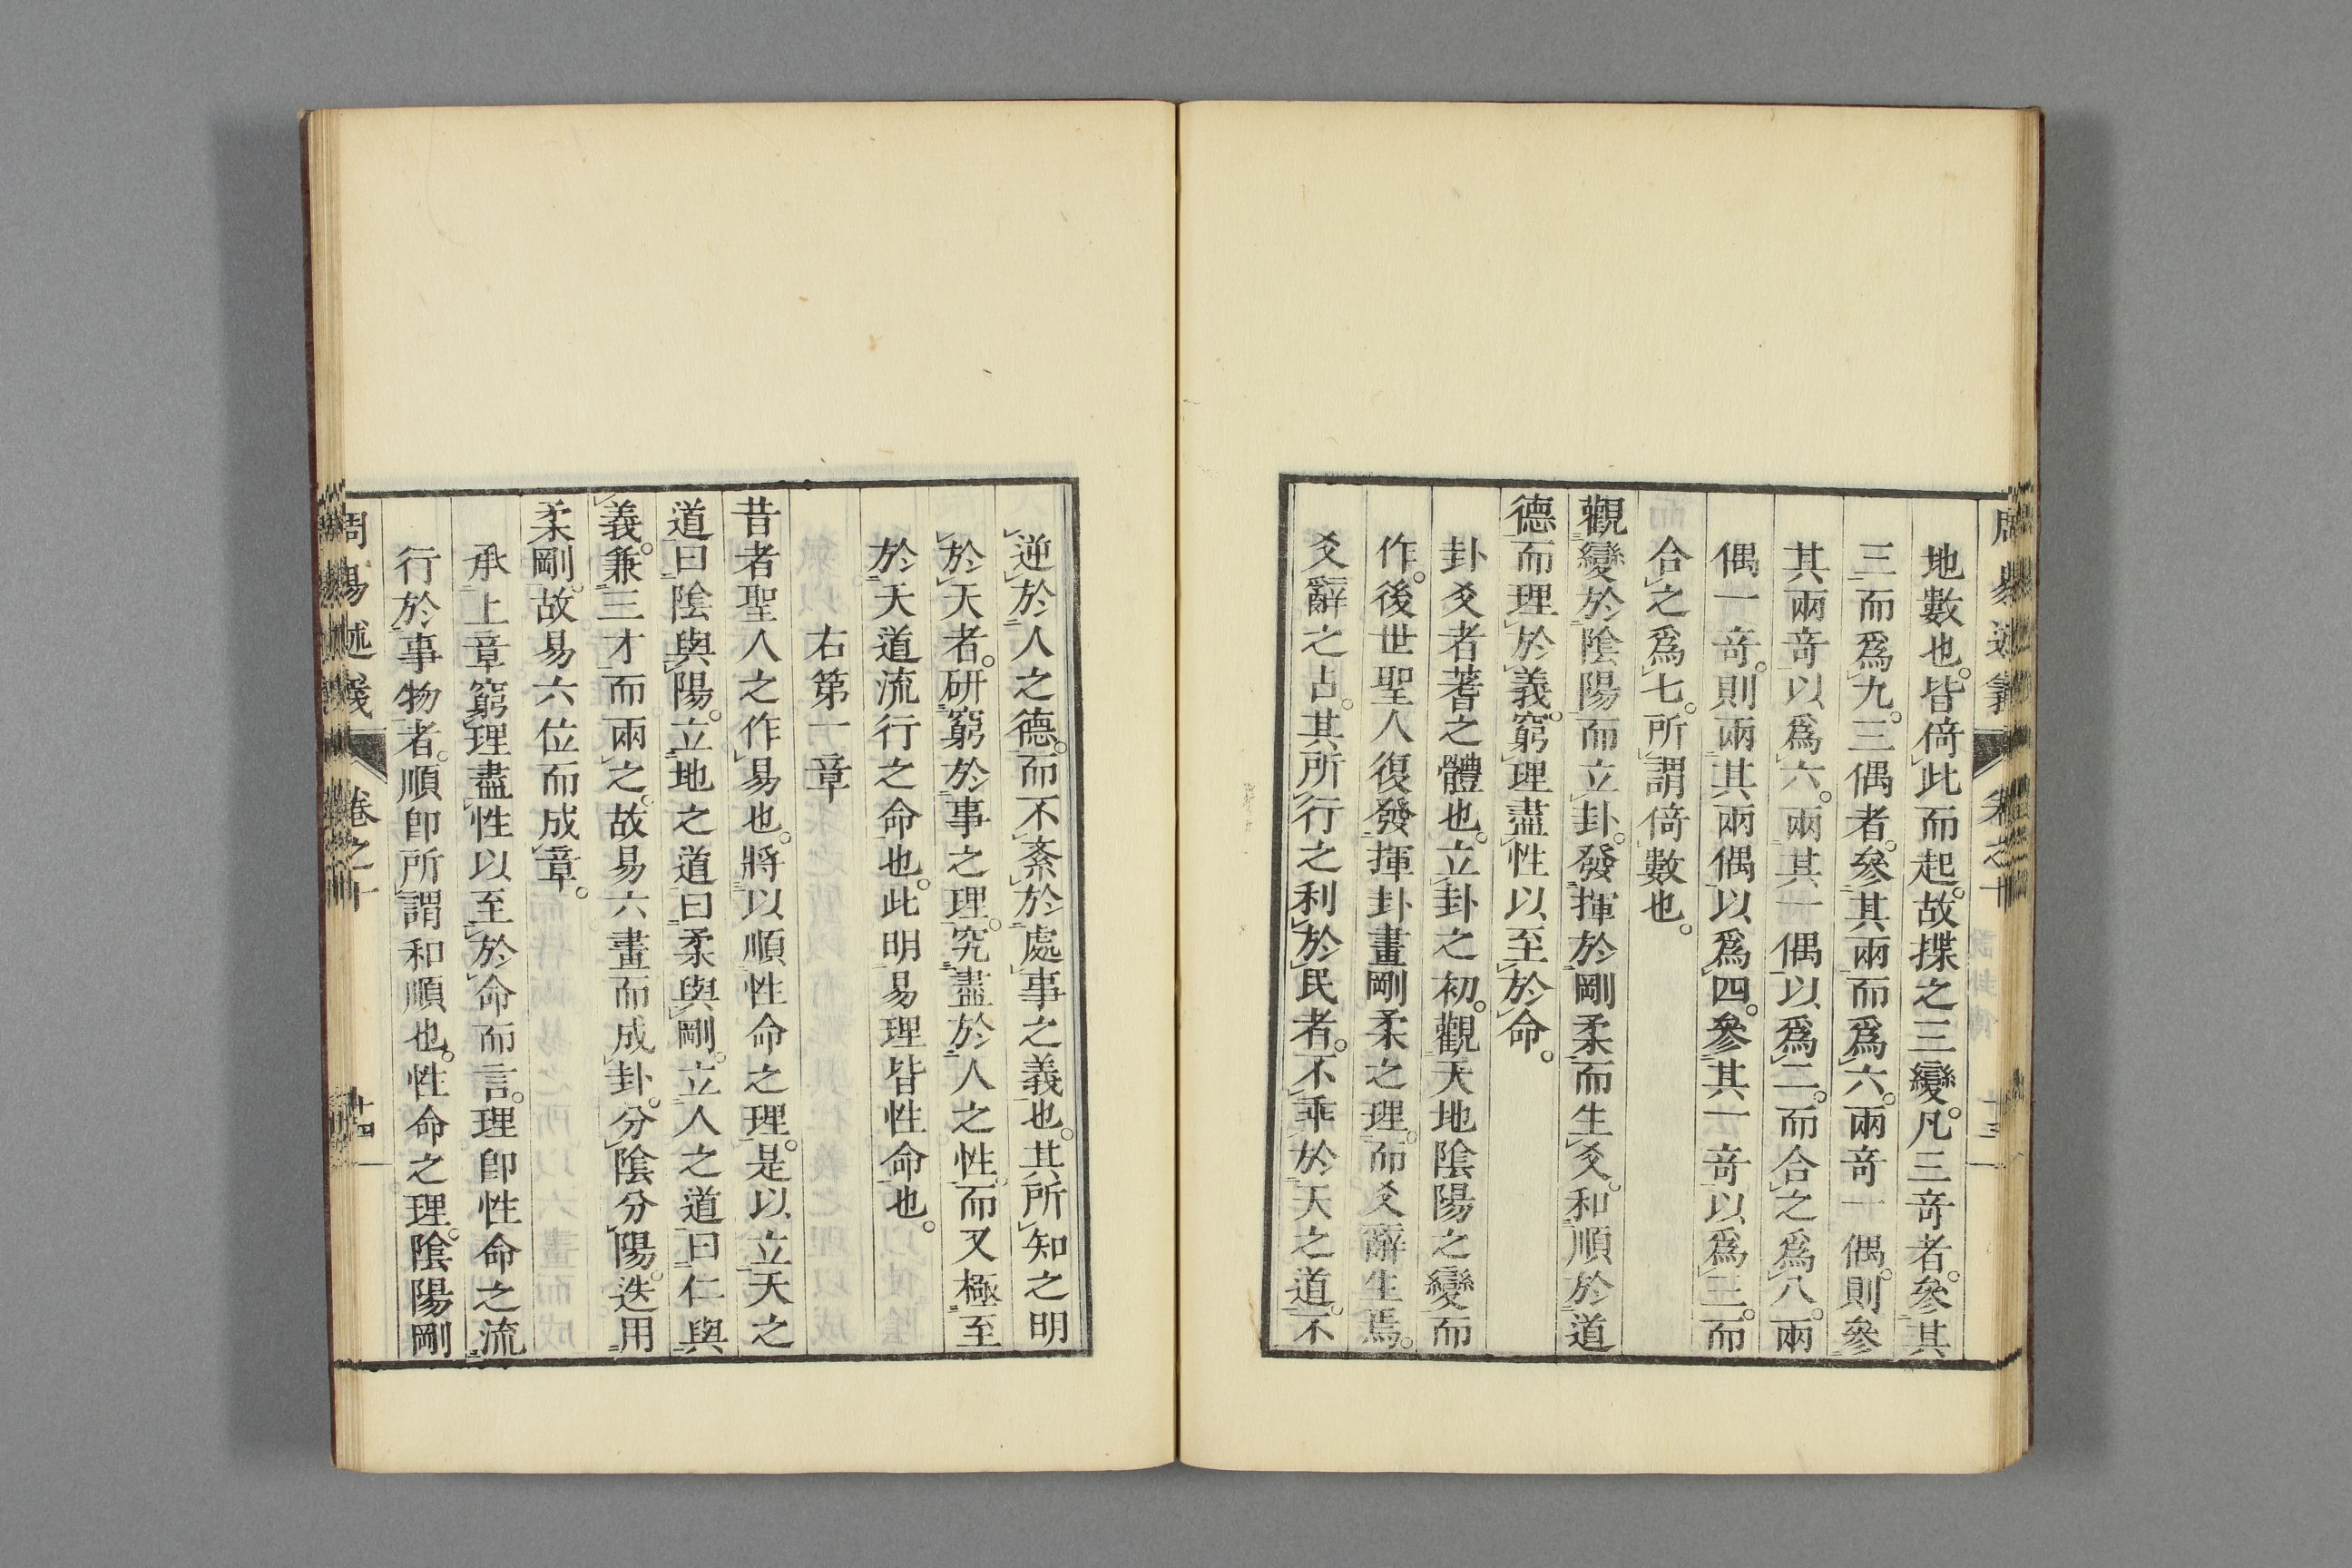 地數也。皆倚此而起。故揲之三變。凡三奇者。參其
三而爲九。三偶者。參其兩而爲六。兩奇一偶。則參
其兩奇以爲六。兩其一偶以爲二。而合之爲八。兩
偶一奇。則兩其兩偶以爲四。參其一奇以爲三。而
合之爲七。所謂倚數也。
觀變於陰陽而立卦。發揮於剛柔而生爻。和順於道
德而理於義。窮理盡性以至於命。
卦爻者蓍之體也。立卦之初。觀天地陰陽之變而
作。後世聖人復發揮卦畫剛柔之理。而爻辭生焉。
爻辭之占。其所行之利於民者。不乖於天之道。不
逆於人之德。而不紊於處事之義也。其所知之明
於天者。研窮於事之理。究盡於人之性。而又極至
於天道流行之命也。此明易理皆性命也。
右第一章
昔者聖人之作易也。將以順性命之理。是以立天之
道曰陰與陽。立地之道曰柔與剛。立人之道曰仁與
義。兼三才而兩之。故易六畫而成卦。分陰分陽。迭用
柔剛。故易六位而成章。
承上章窮理盡性以至於命而言。理卽性命之流
行於事物者。順卽所謂和順也。性命之理。陰陽剛
周易述義 卷之十 十四